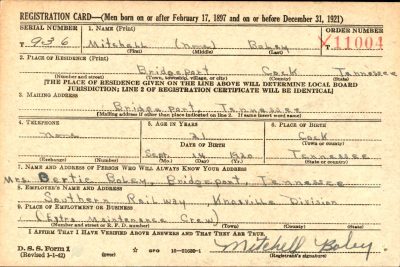 REGISTRATION CARD—(Men born on or after February 17, 1897 and on or before December 31, 1921)
SERIAL NUMBER 1. NAME (Print) ORDER NUMBER
T 936 Mitchell (none) Boley 11004
(First) (Middle) (Last)
2. PLACE OF RESIDENCE (Print)
Bridgeport Cock Tennessee
(Number and street) (Town, township, village, or city) (County) (State)
[THE PLACE OF RESIDENCE GIVEN ON THE LINE ABOVE WILL DETERMINE LOCAL BOARD
JURISDICTION; LINE 2 OF REGISTRATION CERTIFICATE WILL BE IDENTICAL]
3. MAILING ADDRESS
Bridgeport, Tennessee
[Mailing address if other than place indicated on line 2. If same insert word same]
4. TELEPHONE 5. AGE IN YEARS 6. PLACE OF BIRTH
None 21 Cock
DATE OF BIRTH (Town or county)
Sept. 14 1920 Tennessee
(Exchange) (Number) (Mo.) (Day) (Yr.) (State or country)
7. NAME AND ADDRESS OF PERSON WHO WILL ALWAYS KNOW YOUR ADDRESS
Mrs. Bertie Boley, Bridgeport, Tennessee
8. EMPLOYER'S NAME AND ADDRESS
Southern Railway, Knoxville Division
9. PLACE OF EMPLOYMENT OR BUSINESS
(Extra Maintenance Crew)
(Number and street or R. F. D. number) (Town) (County) (State)
I AFFIRM THAT I HAVE VERIFIED ABOVE ANSWERS AND THAT THEY ARE TRUE.
D. S. S. Form 1
(Revised 1-1-42) GPO Mitchell Boley
(Registrant's signature)